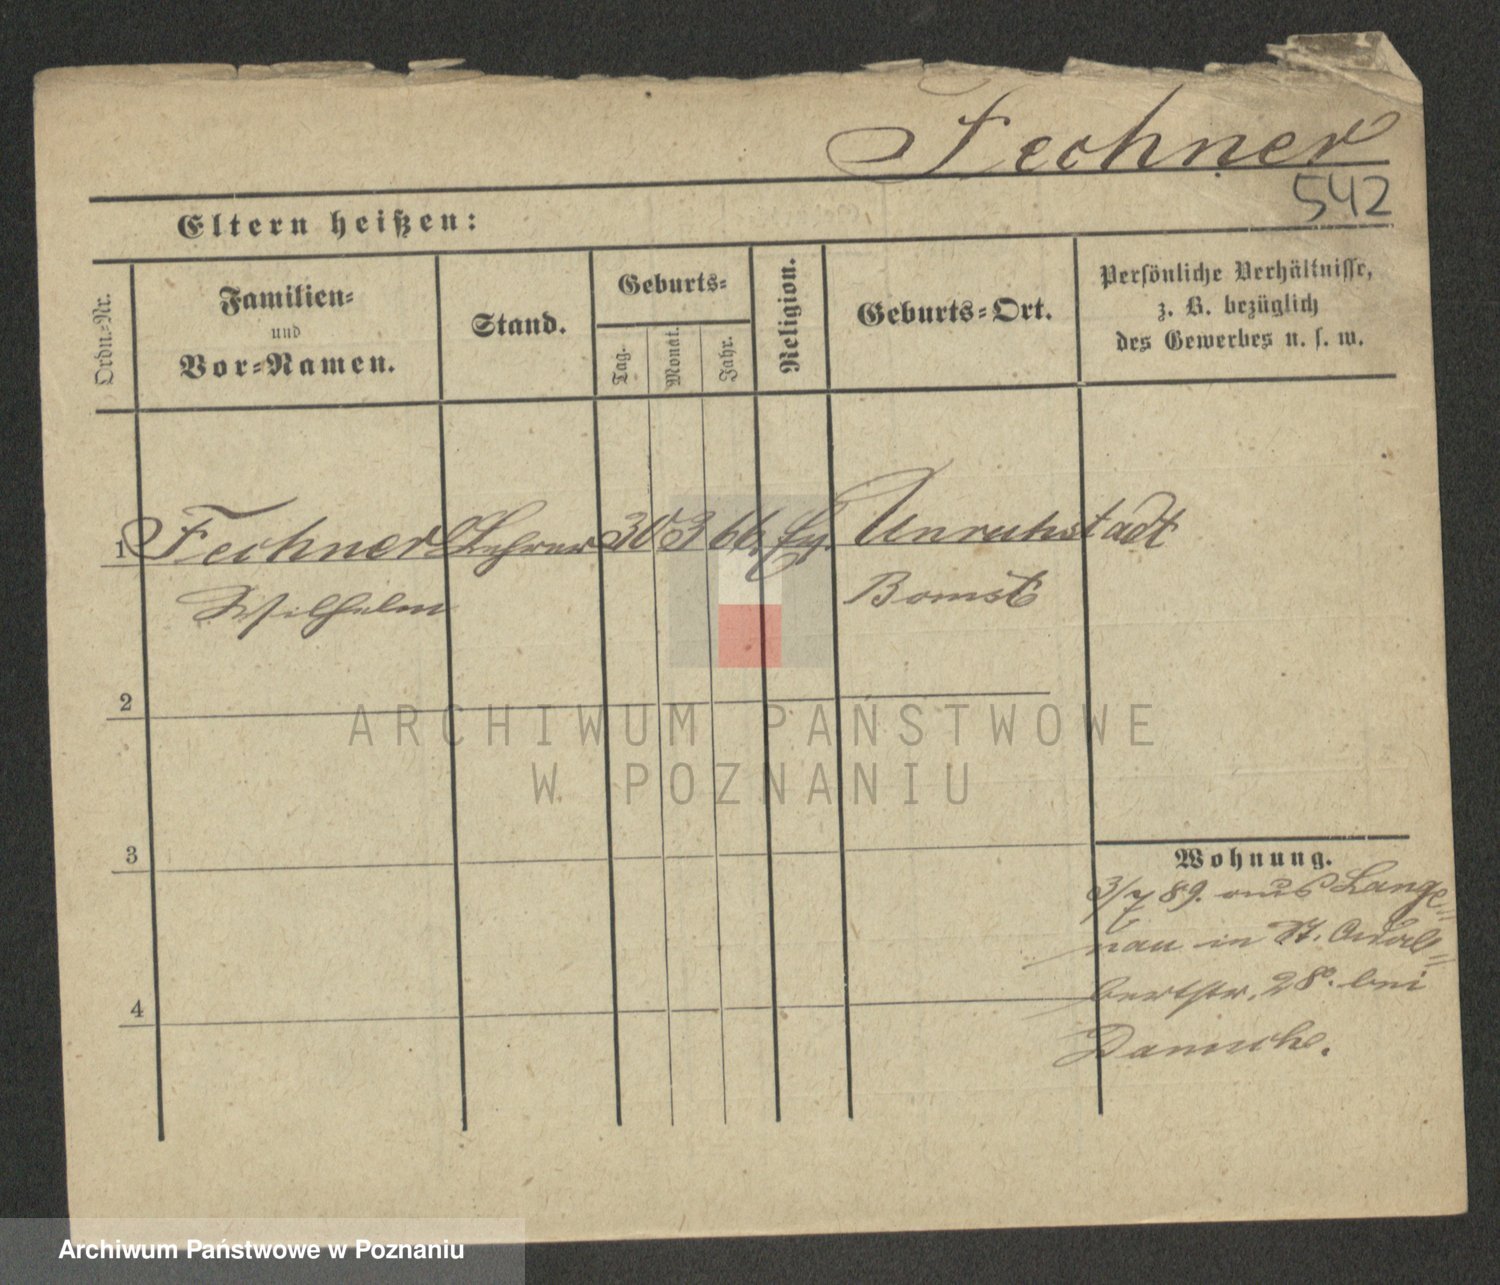 Fechner
542
Eltern heißen:
Ordn.-Nr.
Familien-
und
Vor-Namen.
Stand.
Geburts-
Tag.
Monat.
Jahr.
Religion.
Geburts-Ort.
Persönliche Verhältnisse,
z. B. bezüglich
des Gewerbes u. s. w.
1 Fechner Lehrer 30 3 66. Ev. Unruhstadt
Wilhelm Bomst
2
3
4
Wohnung.
3/7 89. aus Lange-
nau in St. Adal-
bertstr. 28. bei
ARCHIWUM PAŃSTWOWE
W POZNANIU
Archiwum Państwowe w Poznaniu